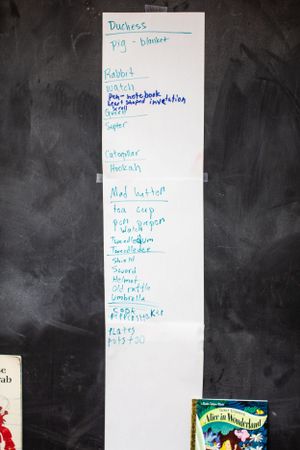 Duchess
pig - blanket
Rabbit
watch
pen - notebook
heart shaped invetation
scroll
Queen
Septer
Caterpillar
Hookah
Mad hatter
tea cup
watch
Tweedledum
Tweedledee
Shield
Sword
Helmet
Old rattle
umbrella
cook
PLATES
Pots +
Alice in Wonderland